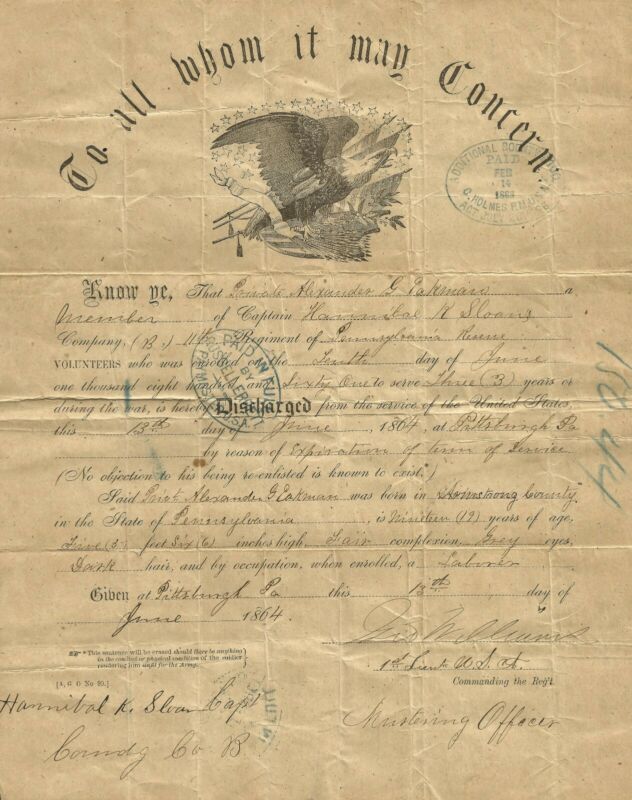 To all whom it may Concern.
ADDITIONAL BOUNTY
PAID
FEB
14
C. HOLMES P.M.
Know ye, That Private Alexander G Eakman a
Member of Captain Hannibal K Sloans
Company, (B.) 11th Regiment of Pennsylvania Reserve
VOLUNTEERS who was enrolled on the Tenth day of June
one thousand eight hundred and Sixty One to serve Three (3) years or
during the war, is hereby Discharged from the service of the United States,
this 13th day of June, 1864, at Pittsburgh Pa
by reason of Expiration of term of Service
(No objection to his being re-enlisted is known to exist.)
Said Privt Alexander G Eakman was born in Armstrong County
in the State of Pennsylvania is Nineteen (19) years of age,
Five (5) feet Six (6) inches high, Fair complexion, Grey eyes,
Dark hair, and by occupation, when enrolled, a Laborer
Given at Pittsburgh Pa this 13th day of
June 1864.
1st Lieut U.S.A.
Commanding the Reg't.
This sentence will be erased should there be anything
in the conduct or physical condition of the soldier
rendering him unfit for the Army.
[A. G. O No 99.]
Hannibal K. Sloan Capt
Comdg Co. B
Mustering Officer